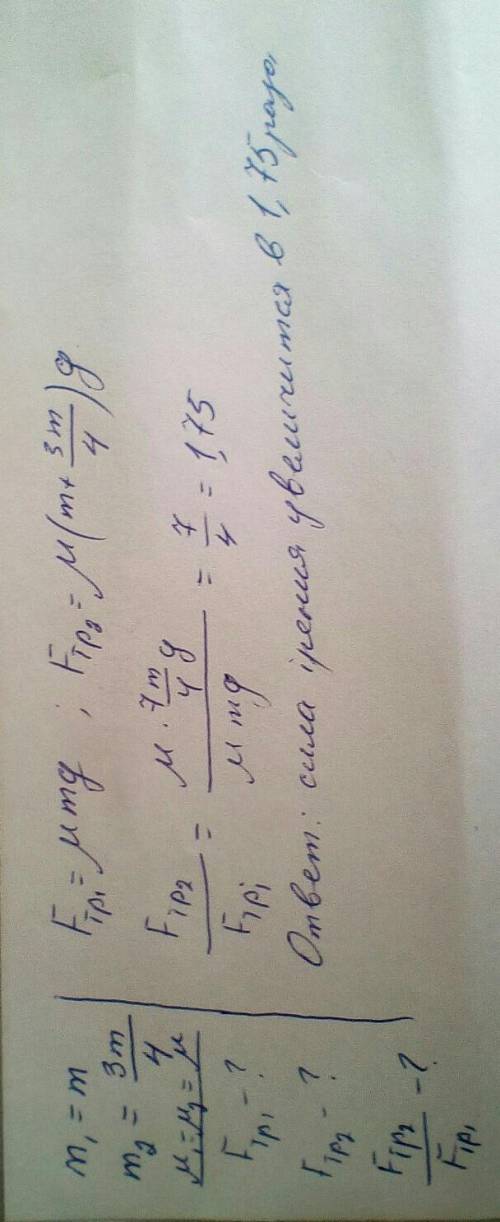 m₁ = m
m₂ = 3m/4
μ₁ = μ₂ = μ
Fтр₁ - ?
Fтр₂ - ?
Fтр₂/Fтр₁ - ?
Fтр₁ = μmg ; Fтр₂ = μ(m + 3m/4)g
Fтр₂/Fтр₁ = (μ · 7m/4 g)/(μmg) = 7/4 = 1,75
Ответ: сила трения увеличится в 1,75 раза,